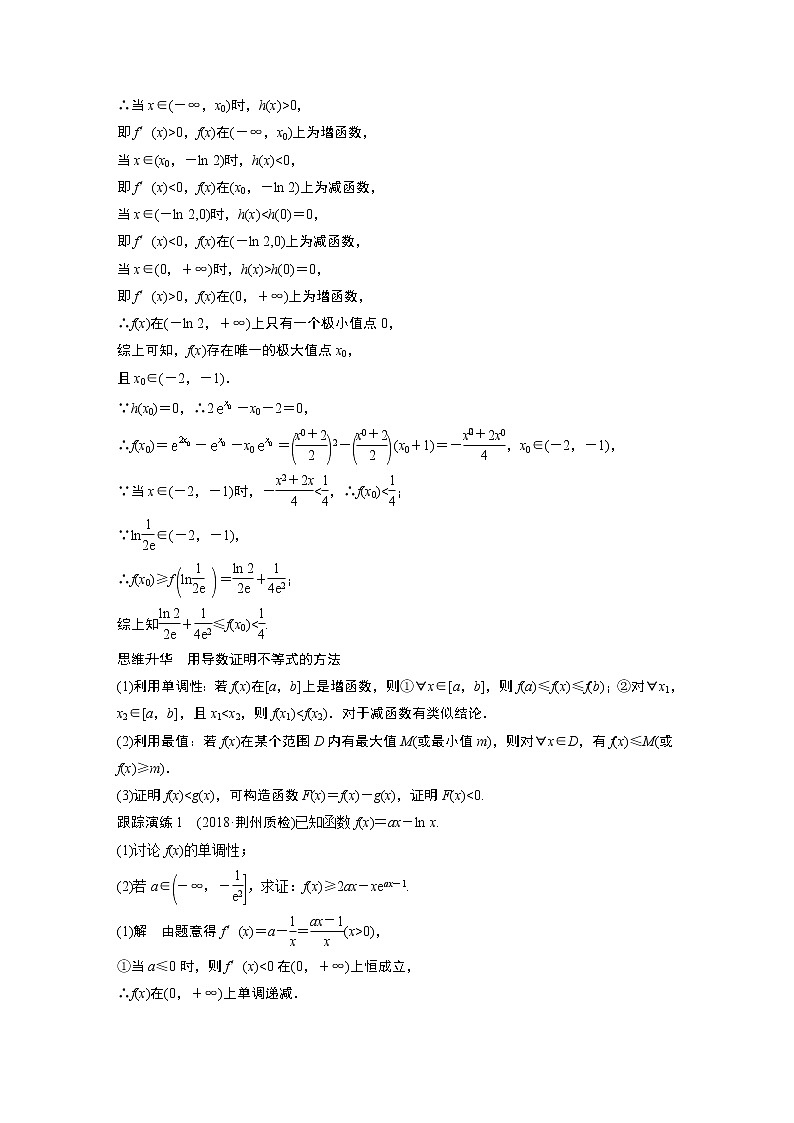 ∴当 x∈(－∞，x₀)时，h(x)>0，
即 f′(x)>0，f(x)在(－∞，x₀)上为增函数，
当 x∈(x₀，－ln 2)时，h(x)<0，
即 f′(x)<0，f(x)在(x₀，－ln 2)上为减函数，
当 x∈(－ln 2,0)时，h(x)<h(0)＝0，
即 f′(x)<0，f(x)在(－ln 2,0)上为减函数，
当 x∈(0，＋∞)时，h(x)>h(0)＝0，
即 f′(x)>0，f(x)在(0，＋∞)上为增函数，
∴f(x)在(－ln 2，＋∞)上只有一个极小值点 0，
综上可知，f(x)存在唯一的极大值点 x₀，
且 x₀∈(－2，－1)．
∵h(x₀)＝0，∴2e^{x₀}－x₀－2＝0，
∴f(x₀)＝e^{2x₀}－e^{x₀}－x₀e^{x₀}＝((x0＋2)/2)²－((x0＋2)/2)(x₀＋1)＝－(x₀²＋2x0)/4，x₀∈(－2，－1)，
∵当 x∈(－2，－1)时，－(x²＋2x)/4<1/4，∴f(x₀)<1/4；
∵ln 1/(2e)∈(－2，－1)，
∴f(x₀)≥f(ln 1/(2e))＝ln 2/(2e)＋1/(4e²)；
综上知 ln 2/(2e)＋1/(4e²)≤f(x₀)<1/4.
思维升华　用导数证明不等式的方法
(1)利用单调性：若 f(x)在[a，b]上是增函数，则①∀x∈[a，b]，则 f(a)≤f(x)≤f(b)；②对∀x₁，
x₂∈[a，b]，且 x₁<x₂，则 f(x₁)<f(x₂)．对于减函数有类似结论．
(2)利用最值：若 f(x)在某个范围 D 内有最大值 M(或最小值 m)，则对∀x∈D，有 f(x)≤M(或
f(x)≥m)．
(3)证明 f(x)<g(x)，可构造函数 F(x)＝f(x)－g(x)，证明 F(x)<0.
跟踪演练 1　(2018·荆州质检)已知函数 f(x)＝ax－ln x.
(1)讨论 f(x)的单调性；
(2)若 a∈(－∞，－1/e²]，求证：f(x)≥2ax－xe^{ax－1}.
(1)解　由题意得 f′(x)＝a－1/x＝(ax－1)/x(x>0)，
①当 a≤0 时，则 f′(x)<0 在(0，＋∞)上恒成立，
∴f(x)在(0，＋∞)上单调递减．